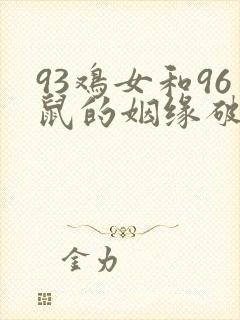 93鸡女和96
鼠的姻缘破
金力